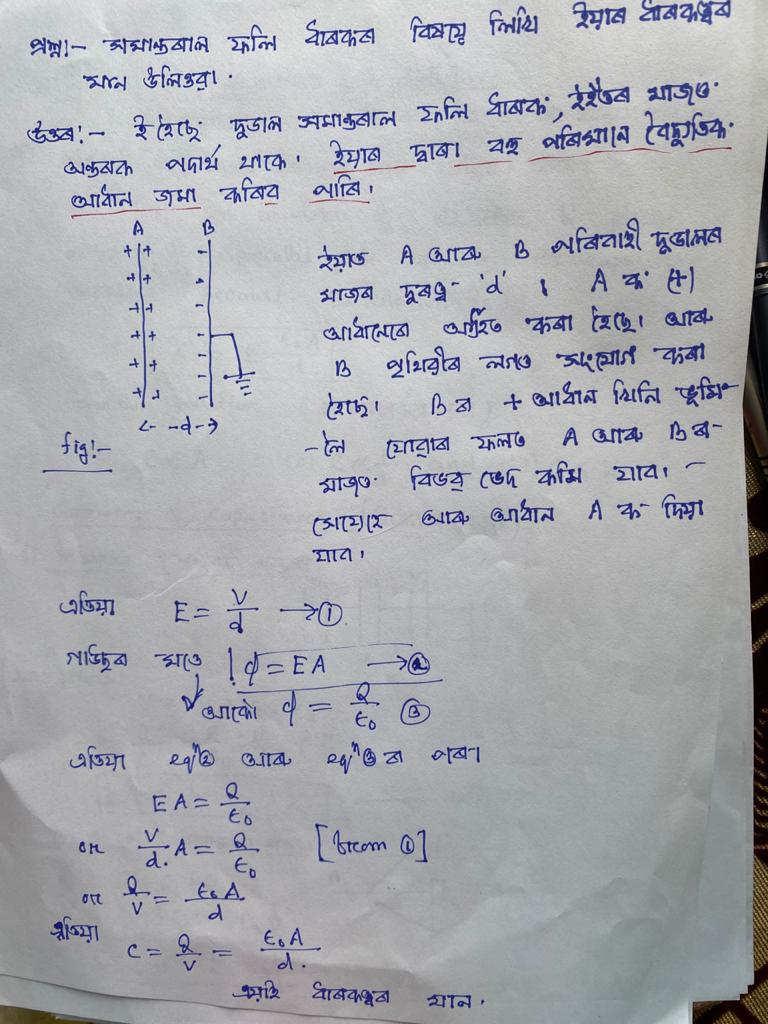 প্ৰশ্ন!- সমান্তৰাল ফলি ধাৰকৰ বিষয়ে লিখি ইয়াৰ ধাৰকত্বৰ
মান উলিওৱা.
উত্তৰ!- ই হৈছে দুডাল সমান্তৰাল ফলি ধাৰক, ইহঁতৰ মাজত
অন্তৰক পদাৰ্থ থাকে. ইয়াৰ দ্বাৰা বহু পৰিমানে বৈদ্যুতিক
আধান জমা কৰিব পাৰি।
A B
+ + -
+ + -
+ + -
+ + -
+ + -
+ + -
<- -d- ->
fig!-
ইয়াত A আৰু B পৰিবাহী দুডালৰ
মাজৰ দুৰত্ব- 'd' । A ক (+)
আধানেৰে কৰা হৈছে। আৰু
B পৃথিৱীৰ লগত সংযোগ কৰা
হৈছে। B ৰ + আধান খিনি ভূমি-
-লৈ যোৱাৰ ফলত A আৰু B ৰ-
মাজত বিভৱ ভেদ কমি যাব। -
সেয়েহে আৰু আধান A ক দিয়া
যাব।
এতিয়া E = V/d → ①
গাউছৰ মতে ϕ = EA → ②
আকৌ ϕ = Q/ε₀ ③
এতিয়া eqⁿ② আৰু eqⁿ③ ৰ পৰা
EA = Q/ε₀
or V/d. A = Q/ε₀ [from ①]
or Q/V = ε₀A/d
এতিয়া C = Q/V = ε₀A/d.
এয়াই ধাৰকত্বৰ মান.